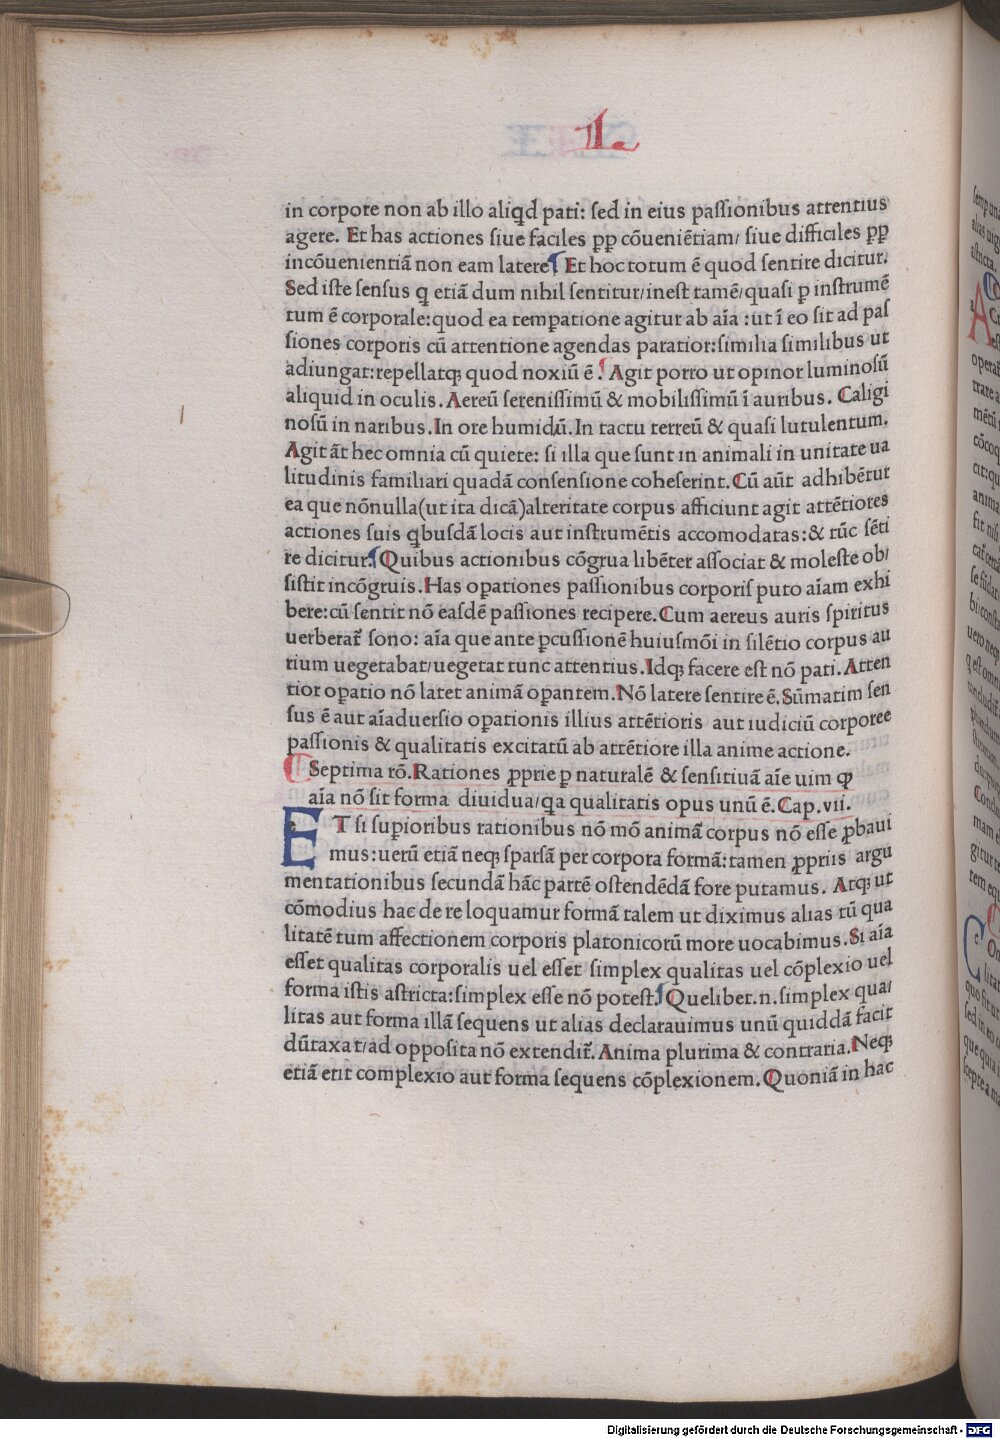 L.
in corpore non ab illo aliqd pati: sed in eius passionibus attentius
agere. Et has actiones siue faciles ꝓp cōueniētiam/ siue difficiles ꝓp
incōuenientiā non eam latere Et hoc totum ē quod sentire dicitur.
Sed iste sensus q etiā dum nihil sentitur/inest tamē/quasi p̱ instrumē
tum ē corporale:quod ea temp̱atione agitur ab aīa :ut ī eo sit ad pas
siones corporis cū attentione agendas paratior:similia similibus ut
adiungat:repellatqꝫ quod noxiū ē. Agit porro ut opinor luminosū
aliquid in oculis. Aereū serenissimū & mobilissimū ī auribus. Caligi
nosū in naribus. In ore humidū. In tactu terreū & quasi lutulentum.
Agit āt hec omnia cū quiete: si illa que sunt in animali in unitate ua
litudinis familiari quadā consensione coheserint. Cū aūt adhibētut
ea que nōnulla(ut ita dicā)alteritate corpus afficiunt agit attētiores
actiones suis qbusdā locis aut instrumētis accomodatas:& tūc sēti
re dicitur. Quibus actionibus cōgrua libēter associat & moleste ob/
sistit incōgruis. Has op̱ationes passionibus corporis puto aīam exhi
bere:cū sentit nō easdē passiones recipere. Cum aereus auris spiritus
uerberat᷑ sono: aīa que ante p̱cussionē huiusmōi in silētio corpus au
rium uegetabat/uegetat tunc attentius. Idqꝫ facere est nō pati. Atten
tior op̱atio nō latet animā op̱antem. Nō latere sentire ē. Sūmatim sen
sus ē aut aīaduersio op̱ationis illius attētioris aut iudiciū corporee
passionis & qualitatis excitatū ab attētiore illa anime actione.
Septima rō. Rationes ꝓprie p̱ naturalē & sensitiuā aīe uim ꝙ
aīa nō sit forma diuidua/qa qualitatis opus unū ē. Cap.vii.
ET si sup̱ioribus rationibus nō mō animā corpus nō esse ꝓbaui
mus:uerū etiā neqꝫ sparsā per corpora formā:tamen ꝓpriis argu
mentationibus secundā hāc partē ostendēdā fore putamus. Atqꝫ ut
cōmodius hac de re loquamur formā talem ut diximus alias tū qua
litatē tum affectionem corporis platonicorū more uocabimus. Si aīa
esset qualitas corporalis uel esset simplex qualitas uel cōplexio uel
forma istis astricta:simplex esse nō potest. Quelibet.n.simplex qua/
litas aut forma illā sequens ut alias declarauimus unū quiddā facit
dūtaxat/ad opposita nō extendit᷑. Anima plurima & contraria. Neqꝫ
etiā erit complexio aut forma sequens cōplexionem. Quoniā in hac
Digitalisierung gefördert durch die Deutsche Forschungsgemeinschaft - DFG